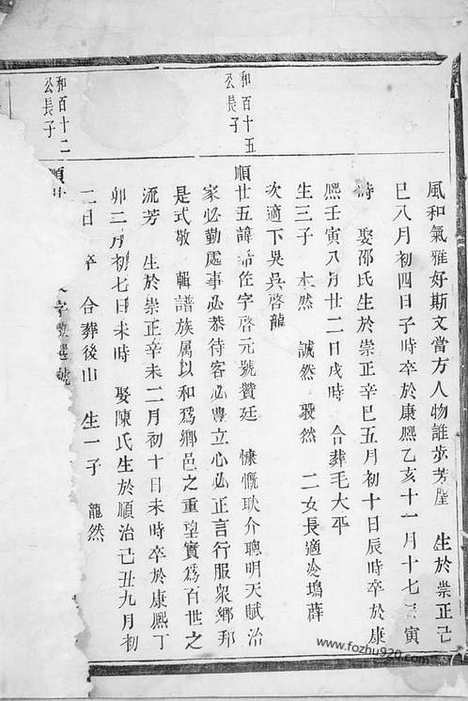 風和氣雅好斯文當方人物誰步芳塵　生於崇正己
巳八月初四日子時卒於康熙乙亥十一月十七日寅
時　娶邵氏生於崇正辛巳五月初十日辰時卒於康
熙壬寅八月廿二日戌時　合葬毛大平
生三子　本然　誠然　毅然　二女長適塢薛
次適下吳吳啓龍
和百十五
公長子
順廿五諱希佐字啓元號贊廷　慷慨耿介聰明天賦治
家必勤處事必恭待客必豊立心必正言行服衆鄉邦
是式敬　輯譜族属以和爲鄉邑之重望實爲百世之
流芳　生於崇正辛未二月初十日未時卒於康熙丁
卯二月初七日未時　娶陳氏生於順治己丑九月初
二日　卒　合葬後山　生一子　龍然
和百十二
公長子
順
字
www.fozhu920.com